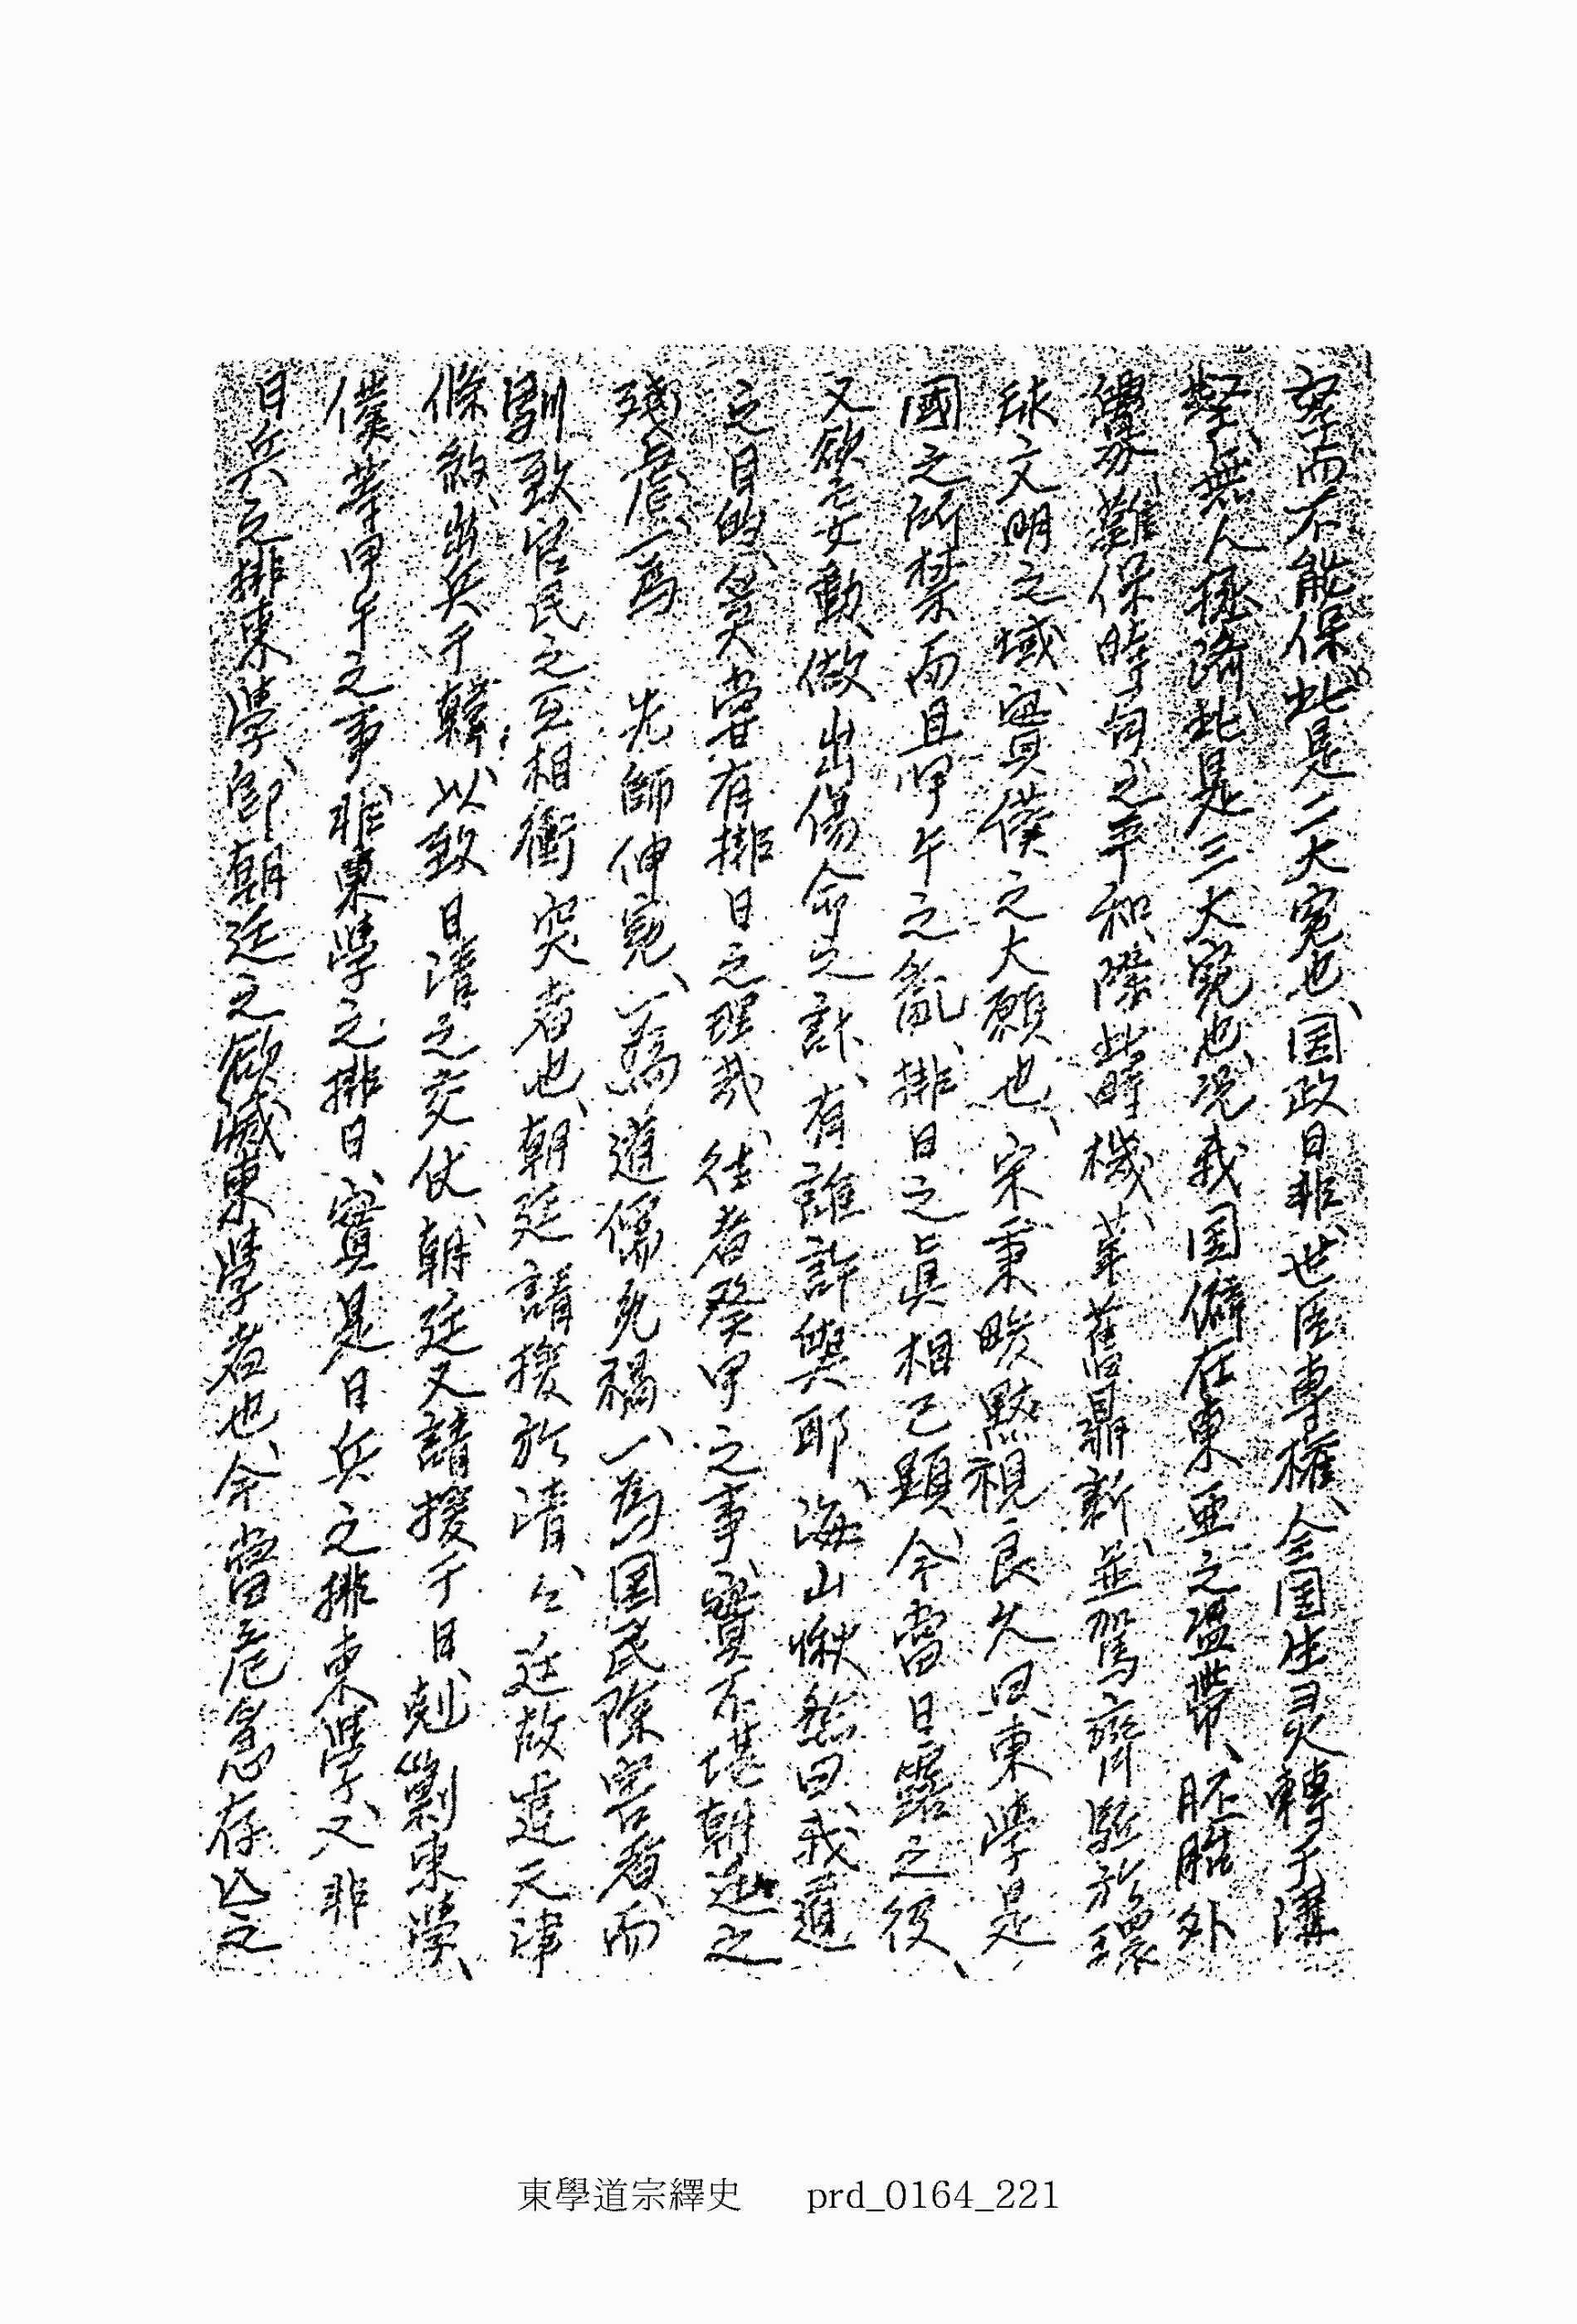 孥而不能保、此是二大寃也、国政日非、世臣專權、全国生灵轉于溝
壑、無人拯濟、此是三大寃也、况我国僻在東亜之温帶、胚胎外
釁、難保時局之平和、際此時機、革舊鼎新、並駕齊驅於環
球文明之域、實僕之大願也、宋秉畯默視良久曰、東學是
國之所禁、而且甲午之亂、排日之眞相已顯、今當日露之役、
又欲妄動、做出傷命之計、有誰許與耶、海山愀然曰、我道
之目的、奚嘗有排日之理哉、往者癸甲之事、實不堪朝廷之
殘虐、一爲 先師伸寃、一爲道儒免禍、一爲国民除害者、而
馴致官民之互相衝突者也、朝廷請援於清、々廷故違天津
條約、出兵于韓、以致日清之交仗、朝廷又請援于日、剋剿東學、
僕等甲午之事、非東學之排日、實是日兵之排東學、又非
日兵之排東學、卽朝廷之欲滅東學者也、今當危急存亡之
東學道宗繹史 prd_0164_221